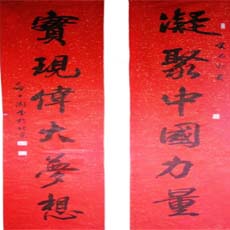 凝聚中國力量
實現偉大夢想